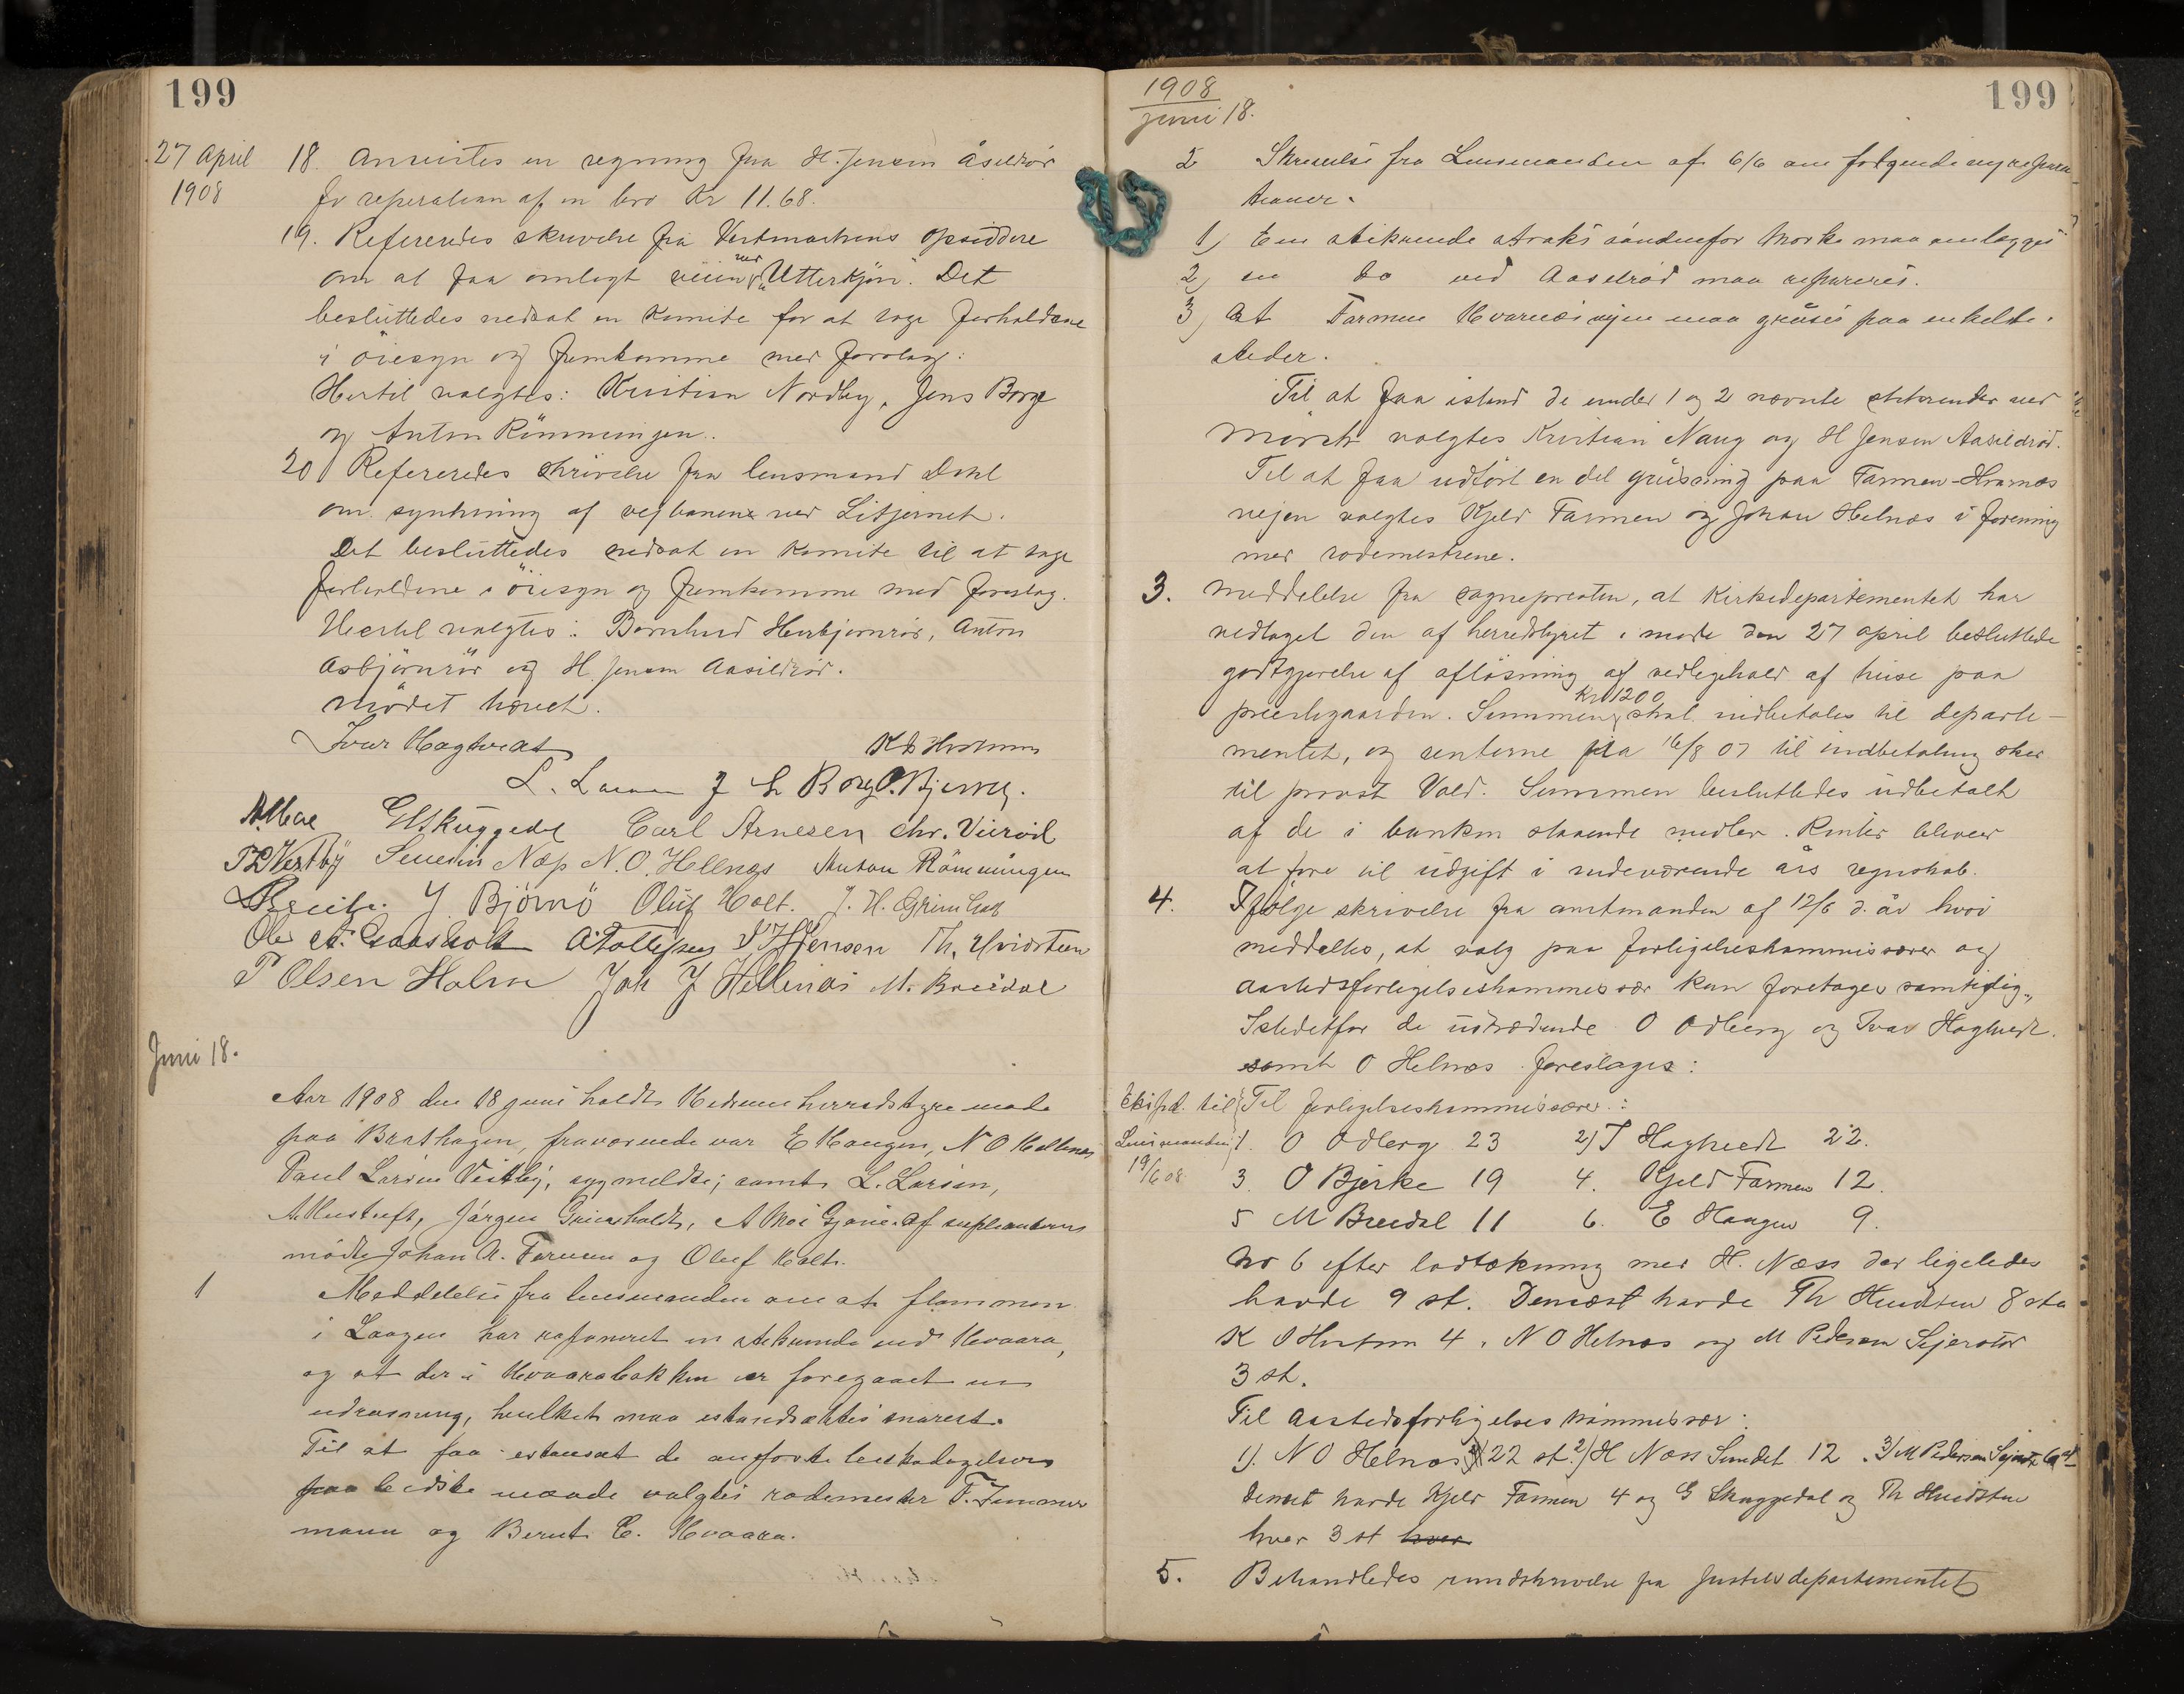 199
27 April
1908
18. Anvistes en regning fra H. Jensen Åsildrör
for reperation af en bro Kr 11.68.
19. Refereredes skrivelse fra Vestmarkens opsiddere
om at faa omlagt veien ved "Utterkjön". Det
besluttedes nedsat en komite for at tage forholdene
i öiesyn og fremkomme med forslag:
Hertil valgtes: Kristian Nordby, Jens Borge
og Anton Rönningen.
20 Refereredes skrivelse fra lensmand Dahl
om synkning af vejbanen ved Litjernet.
Det besluttedes nedsat en komite til at tage
forholdene i öiesyn og fremkomme med forslag.
Hertil valgtes: Bernhard Herbjørnröd, Anton
Asbjörnröd og H. Jensen Aasildröd.
Mödet hævet.
Ivar Hagtvedt
L. Larsen J L Borge O. Bjerke
G Skuggedal Carl Arnesen Chr. Vieröd
P L Vestby Severin Næss N. O. Hellnæs Anton Römmingen
J Björnö Oluf Holt. J. H. Grimholt
Ole A. Gaasholt A Tollefsen H Jensen Th. Hvidsteen
P Olsen Holm Joh J Hellenæs M. Breidal
Juni 18.
Aar 1908 den 18 juni holdt Hedrum herredstyre møde
paa Brathagen, fraværende var E Haugen, N O Helnæs
Paul Larsen Vestby, sygmeldte; samt L. Larsen,
Jørgen Grimholdt, A Moe. Af supleanterne
mödte Johan A. Farmen og Oluf Holt.
1
Meddelelse fra lensmanden om at flommen
i Laagen har ruineret en stikrende ved Kvaara,
og at der i Kvaarabakken er foregaaet en
udrasning, hvilket maa istandsættes snarest.
Til at faa istandsat de anførte beskadigelser
paa bedste maade valgtes rodemester F. Zimmer
mann og Bernt E. Kvaara.
1908
juni 18.
199
2 Skrivelse fra Lensmanden af 6/6 om følgende vejrepara
tioner.
1) En stikrende straks söndenfor Mørke maa omlægges
2) en do ved Aaselröd maa repareres.
3) At Farmen Kvarnæsvejen maa grüses paa enkelte
steder.
Til at faa istand de under 1 og 2 nævnte stikrender ved
Mörch valgtes Kristian Naug og H Jensen Aasildröd.
Til at faa udfört en del grüsning paa Farmen-Hvarnæs
vejen valgtes Kjeld Farmen og Johan Helnæs i forening
med rodemestrene.
3. Meddelelse fra sognepresten, at Kirkedepartementet har
vedtaget den af herredstyret i møde den 27 april besluttede
godtgjørelse af aflösning af vedligehold af huse paa
prestegaarden. Summen Kr 1200 skal indbetales til departe-
mentet, og renterne fra 16/8 07 til indbetaling sker
til provst Vold. Summen besluttedes udbetalt
af de i banken staaende midler. Renter bliver
at føre til udgift i indeværende års regnskab.
4. Ifölge skrivelse fra amtmanden af 12/6 d. år hvori
meddeltes, at valg paa forligelseskommissærer og
aastedsforligelseskommissær kan foretages samtidig.
Istedetfor de udtrædende O Odberg og Ivar Hagtvedt
samt O Helnæs foreslages:
Ekspd. til
Lensmanden
19/6 08
Til forligelseskommissærer:
1. O Odberg 23 2) I Hagtvedt 22.
3. O Bjerke 19 4. Kjeld Farmen 12.
5 M Breidal 11 6. E Haugen 9.
No 6 efter lodtrækning med H. Næss der ligeledes
havde 9 st. Dernæst havde Th Hvidsten 8 st
K O Holmen 4, N O Helnæs og M Pedersen Sejersted
3 st.
Til Aastedsforligelses kommissær:
1). N O Helnæs 22 st. 2) H Næss Sundet 12. 3) M Pedersen Sejersted 6 st
Dernæst havde Kjeld Farmen 4 og G Skuggedal og Th Hvidsten
hver 3 st hver
5. Behandledes rundskrivelse fra Justisdepartementet